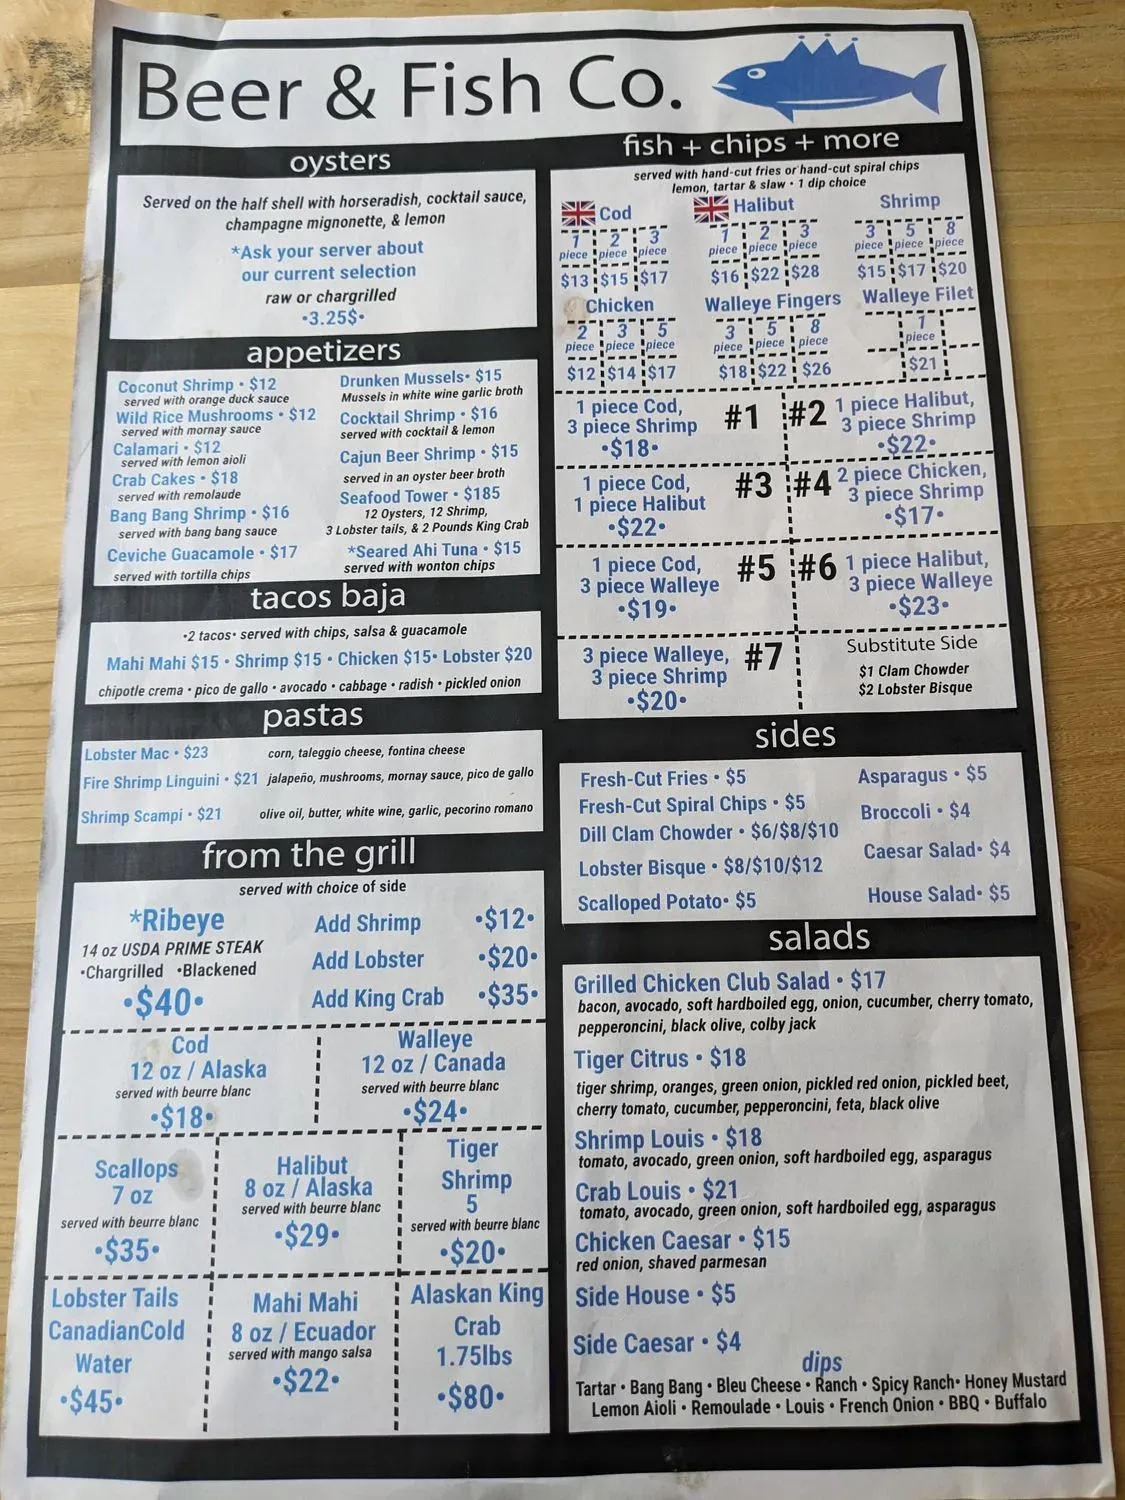 Beer & Fish Co.
oysters
Served on the half shell with horseradish, cocktail sauce,
champagne mignonette, & lemon
*Ask your server about
our current selection
raw or chargrilled
•3.25$•
appetizers
Coconut Shrimp • $12
served with orange duck sauce
Wild Rice Mushrooms • $12
served with mornay sauce
Calamari • $12
served with lemon aioli
Crab Cakes • $18
served with remolaude
Bang Bang Shrimp • $16
served with bang bang sauce
Ceviche Guacamole • $17
served with tortilla chips
Drunken Mussels• $15
Mussels in white wine garlic broth
Cocktail Shrimp • $16
served with cocktail & lemon
Cajun Beer Shrimp • $15
served in an oyster beer broth
Seafood Tower • $185
12 Oysters, 12 Shrimp,
3 Lobster tails, & 2 Pounds King Crab
*Seared Ahi Tuna • $15
served with wonton chips
tacos baja
•2 tacos• served with chips, salsa & guacamole
Mahi Mahi $15 • Shrimp $15 • Chicken $15• Lobster $20
chipotle crema • pico de gallo • avocado • cabbage • radish • pickled onion
pastas
Lobster Mac • $23 corn, taleggio cheese, fontina cheese
Fire Shrimp Linguini • $21 jalapeño, mushrooms, mornay sauce, pico de gallo
Shrimp Scampi • $21 olive oil, butter, white wine, garlic, pecorino romano
from the grill
served with choice of side
*Ribeye
14 oz USDA PRIME STEAK
•Chargrilled •Blackened
•$40•
Add Shrimp •$12•
Add Lobster •$20•
Add King Crab •$35•
Cod
12 oz / Alaska
served with beurre blanc
•$18•
Walleye
12 oz / Canada
served with beurre blanc
•$24•
Scallops
7 oz
served with beurre blanc
•$35•
Halibut
8 oz / Alaska
served with beurre blanc
•$29•
Tiger
Shrimp
5
served with beurre blanc
•$20•
Lobster Tails
CanadianCold
Water
•$45•
Mahi Mahi
8 oz / Ecuador
served with mango salsa
•$22•
Alaskan King
Crab
1.75lbs
•$80•
fish + chips + more
served with hand-cut fries or hand-cut spiral chips
lemon, tartar & slaw • 1 dip choice
Cod
1 2 3
piece piece piece
$13 $15 $17
Halibut
1 2 3
piece piece piece
$16 $22 $28
Shrimp
3 5 8
piece piece piece
$15 $17 $20
Chicken
2 3 5
piece piece piece
$12 $14 $17
Walleye Fingers
3 5 8
piece piece piece
$18 $22 $26
Walleye Filet
1
piece
$21
1 piece Cod,
3 piece Shrimp
•$18•
#1
#2
1 piece Halibut,
3 piece Shrimp
•$22•
1 piece Cod,
1 piece Halibut
•$22•
#3
#4
2 piece Chicken,
3 piece Shrimp
•$17•
1 piece Cod,
3 piece Walleye
•$19•
#5
#6
1 piece Halibut,
3 piece Walleye
•$23•
3 piece Walleye,
3 piece Shrimp
•$20•
#7
Substitute Side
$1 Clam Chowder
$2 Lobster Bisque
sides
Fresh-Cut Fries • $5
Fresh-Cut Spiral Chips • $5
Dill Clam Chowder • $6/$8/$10
Lobster Bisque • $8/$10/$12
Scalloped Potato• $5
Asparagus • $5
Broccoli • $4
Caesar Salad• $4
House Salad• $5
salads
Grilled Chicken Club Salad • $17
bacon, avocado, soft hardboiled egg, onion, cucumber, cherry tomato,
pepperoncini, black olive, colby jack
Tiger Citrus • $18
tiger shrimp, oranges, green onion, pickled red onion, pickled beet,
cherry tomato, cucumber, pepperoncini, feta, black olive
Shrimp Louis • $18
tomato, avocado, green onion, soft hardboiled egg, asparagus
Crab Louis • $21
tomato, avocado, green onion, soft hardboiled egg, asparagus
Chicken Caesar • $15
red onion, shaved parmesan
Side House • $5
Side Caesar • $4
dips
Tartar • Bang Bang • Bleu Cheese • Ranch • Spicy Ranch• Honey Mustard
Lemon Aioli • Remoulade • Louis • French Onion • BBQ • Buffalo